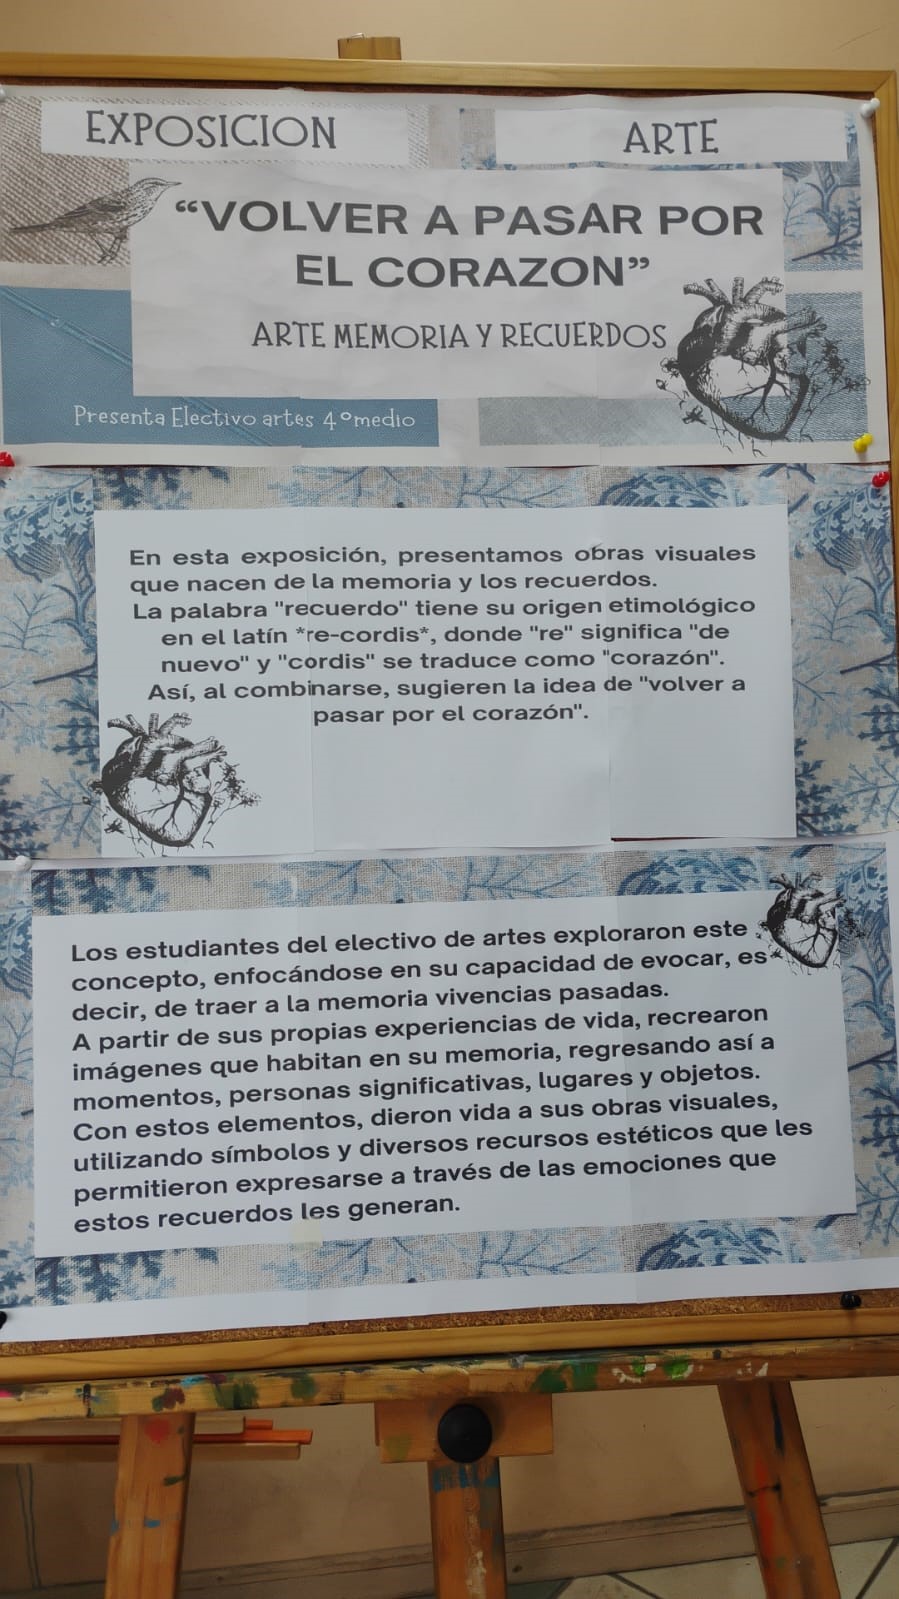 EXPOSICION
ARTE
“VOLVER A PASAR POR
EL CORAZON”
ARTE MEMORIA Y RECUERDOS
Presenta Electivo artes 4°medio
En esta exposición, presentamos obras visuales
que nacen de la memoria y los recuerdos.
La palabra "recuerdo" tiene su origen etimológico
en el latín *re-cordis*, donde "re" significa "de
nuevo" y "cordis" se traduce como "corazón".
Así, al combinarse, sugieren la idea de "volver a
pasar por el corazón".
Los estudiantes del electivo de artes exploraron este
concepto, enfocándose en su capacidad de evocar, es
decir, de traer a la memoria vivencias pasadas.
A partir de sus propias experiencias de vida, recrearon
imágenes que habitan en su memoria, regresando así a
momentos, personas significativas, lugares y objetos.
Con estos elementos, dieron vida a sus obras visuales,
utilizando símbolos y diversos recursos estéticos que les
permitieron expresarse a través de las emociones que
estos recuerdos les generan.